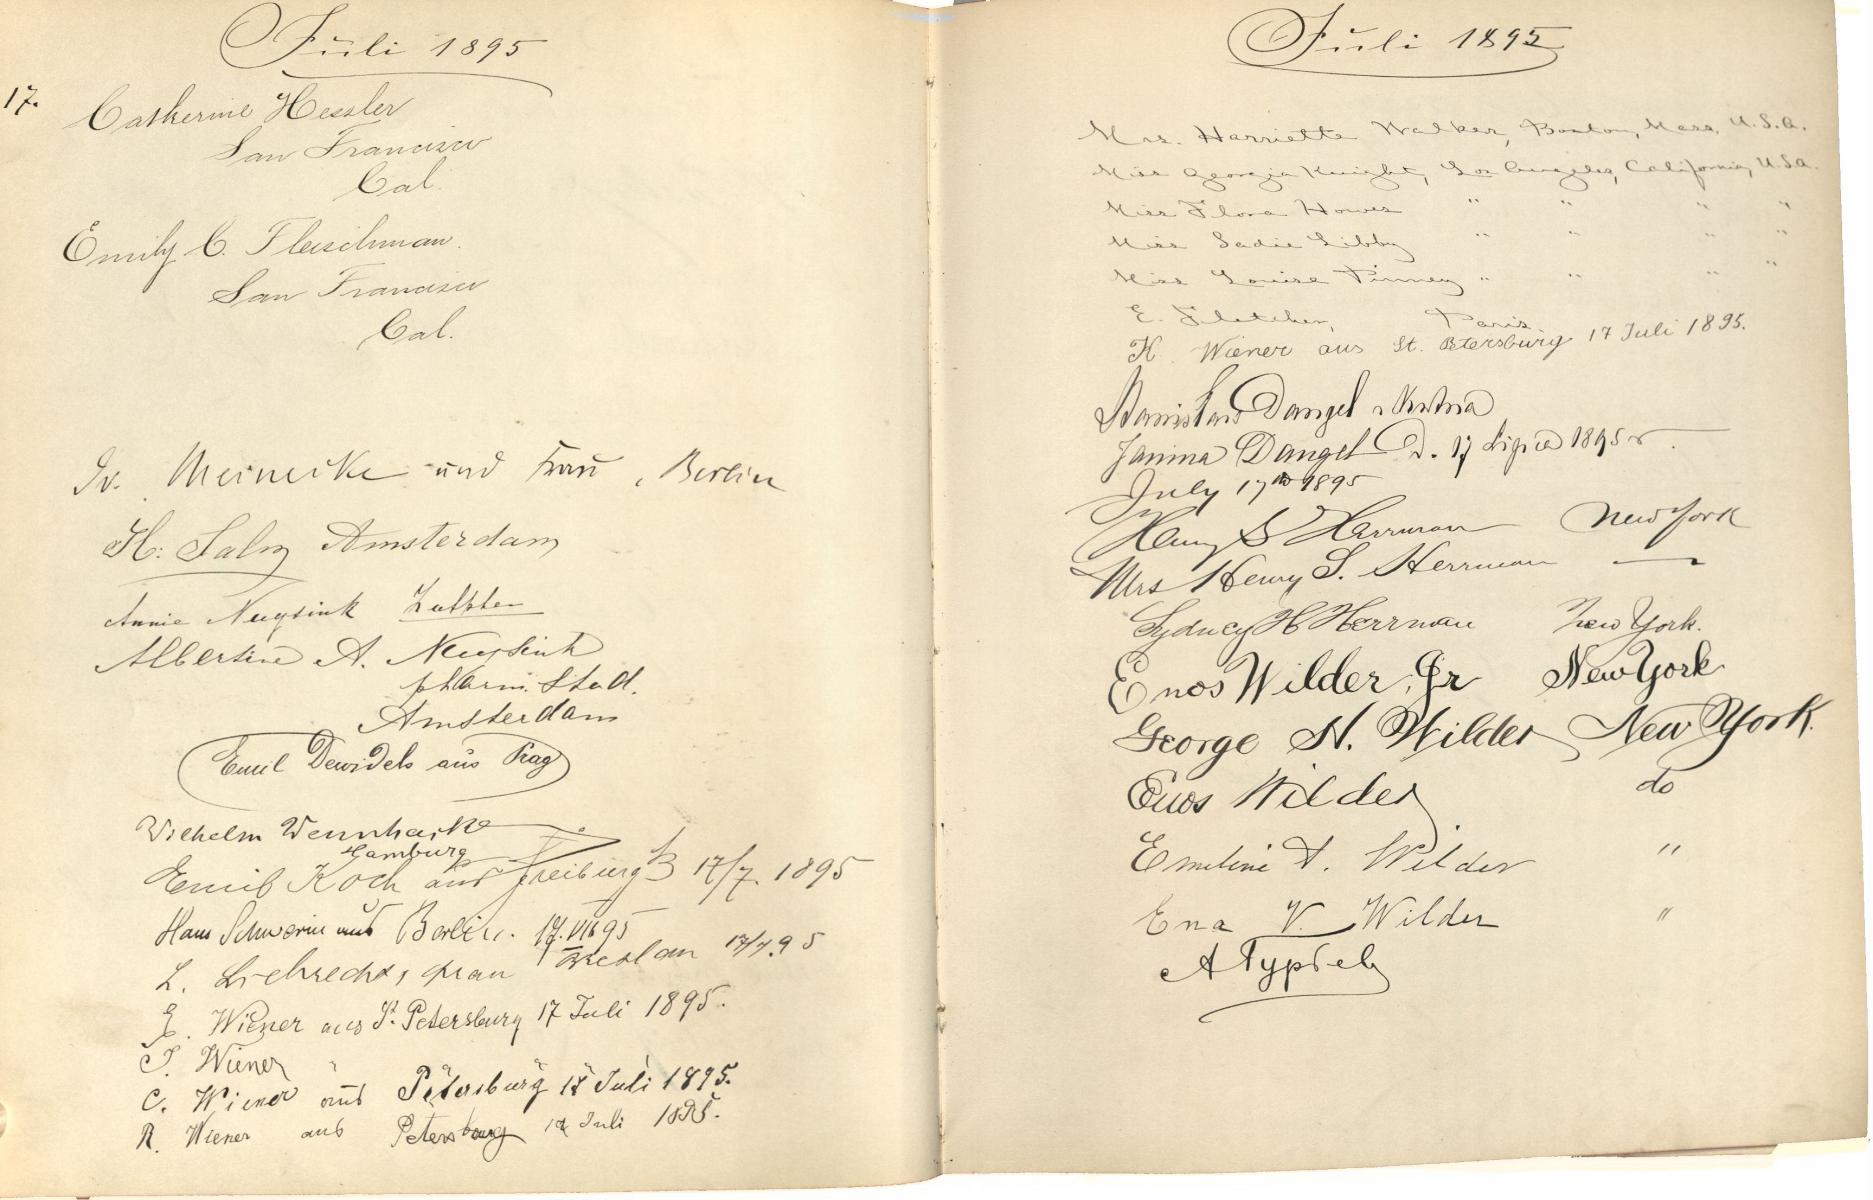 Juli 1895
17.
Catherine Hessler
San Francisco
Cal.
Emily C. Fleischman.
San Francisco
Cal.
Meinecke und Frau, Berlin
H. Salm Amsterdam
Annie Neysink Zutphen
Albertine A. Neysink
pharm. stud.
Amsterdam
Emil Dewidels aus Prag
Wilhelm
Hamburg
Emil Koch aus Freiburg i/B 17/7. 1895
Hans Schwerin aus Berlin. 17.VII.95
L. Liebrecht, Frau Breslau 17/7.95
E. Wiener aus St. Petersburg 17 Juli 1895.
J. Wiener "
C. Wiener aus Petersburg 17 Juli 1895.
R. Wiener aus Petersburg 17 Juli 1895.
Juli 1895
Mrs. Harriette Walker, Boston, Mass. U.S.A.
Miss Georgia Knight, Los Angeles, California, U.S.A.
Miss Flora Howes " " " "
Miss Sadie Libby " " " "
Miss Louise Pinney " " " "
E. Fletcher, Paris.
H. Wiener aus St. Petersburg 17 Juli 1895.
Stanisław Dangel
Janina Dangel D. 17 Lipca 1895 r.
July 17th 1895
Henry S Herrman New York
Mrs Henry S. Herrman —
Sydney H Herrman New York.
Enos Wilder, Jr New York
George H. Wilder New York.
Enos Wilder do
Emeline A. Wilder "
Ena V. Wilder "